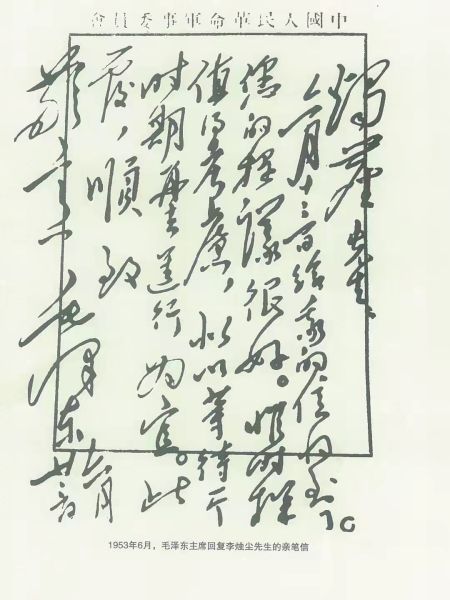 中國人民革命軍事委員會
燭塵先生:
六月十三日給我的信收到了。
您的提議很好。惟時機
值得考慮,似以等待一个
時期再去進行为宜。此
覆,順致
敬意! 毛澤东
六月
1953年6月,毛泽东主席回复李烛尘先生的亲笔信